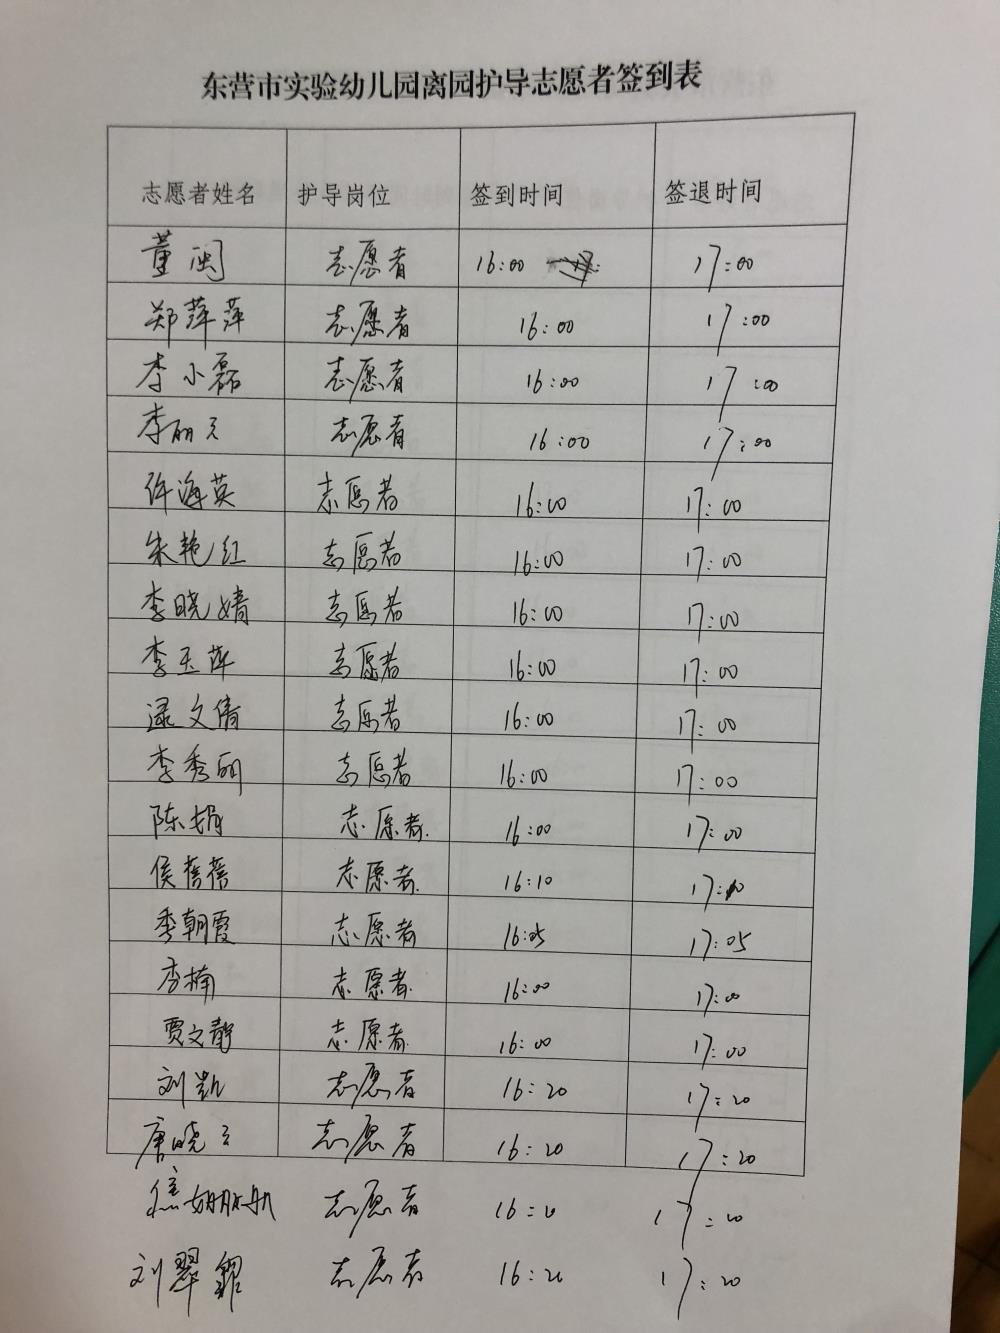 东营市实验幼儿园离园护导志愿者签到表
志愿者姓名 护导岗位 签到时间 签退时间
董闽 志愿者 16:00 17:00
郑萍萍 志愿者 16:00 17:00
李小磊 志愿者 16:00 17:00
李丽云 志愿者 16:00 17:00
许海英 志愿者 16:00 17:00
朱艳红 志愿者 16:00 17:00
李晓婧 志愿者 16:00 17:00
李玉萍 志愿者 16:00 17:00
逯文倩 志愿者 16:00 17:00
李秀丽 志愿者 16:00 17:00
陈娟 志愿者 16:00 17:00
侯蓓蓓 志愿者 16:10 17:10
季朝霞 志愿者 16:05 17:05
李楠 志愿者 16:00 17:00
贾文静 志愿者 16:00 17:00
刘凯 志愿者 16:20 17:20
唐晓云 志愿者 16:20 17:20
志愿者 16:20 17:20
刘翠 志愿者 16:20 17:20